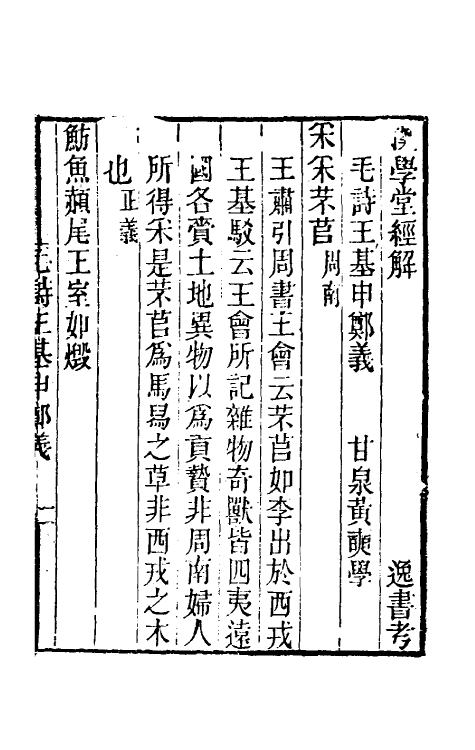 漢學堂經解 逸書考
毛詩王基申鄭義 甘泉黃奭學
采采芣苢周南
王肅引周書王會云芣苢如李出於西戎
王基駁云王會所記雜物奇獸皆四夷遠
國各賫土地異物以爲貢贄非周南婦人
所得采是芣苢爲馬舃之草非西戎之木
也正義
魴魚赬尾王室如燬
毛詩王基申鄭義 一